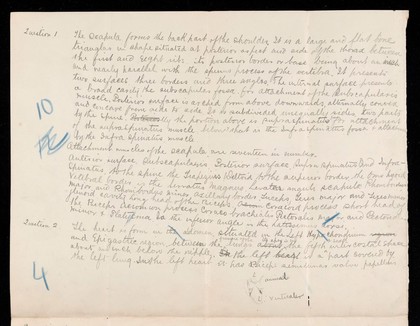 Question 1 The Scapula forms the back part of the shoulder. It is a large and flat bone
triangular in shape situated at posterior aspect and side of the thorax between
the first and eight rib. its posterior border or base being about an inch
and nearly parallel with the spinus process of the vertebra. It presents
two surfaces three borders and three angles. The internal surface presents
a broad cavity the subscapular fossa for attachment of the Subscapularis
muscle. Posterior surface is arched from above downwards, alternately concave
and convex from side to side is subdivided unequally into two parts
by the spine the portion above is supraspinatus for attachment
of the supraspinatus muscle below that is the infraspinatus fossa attachm
by the Infra spinatus muscle
10
Attachment muscles of the scapula are seventeen in number.
Anterior surface, Subscapularis Posterior surface, Supra spinatus and Infra
Spinatus. At the spine the Trapezius Deltoid at the superior border the Omo hyoid
Vertebral border is the Serratus magnus Levator anguli scapula Rhomboideus
major and Rhomboideus minor axillary border Triceps Teres major and Teres minor
glenoid cavity long head of the Biceps Coracoid process short head of
the Biceps process Coraco brachialis Pectoralis and Pectoralis
minor & Platysma to the inferior angle is the Latissimus dorsi.
Question 2 The heart is from in the situated in the left
and Epigastric region, between the the fifth intercostal space
about an inch below the nipple, is a part covered by
the left lung. In the left heart it has
4
ventricular